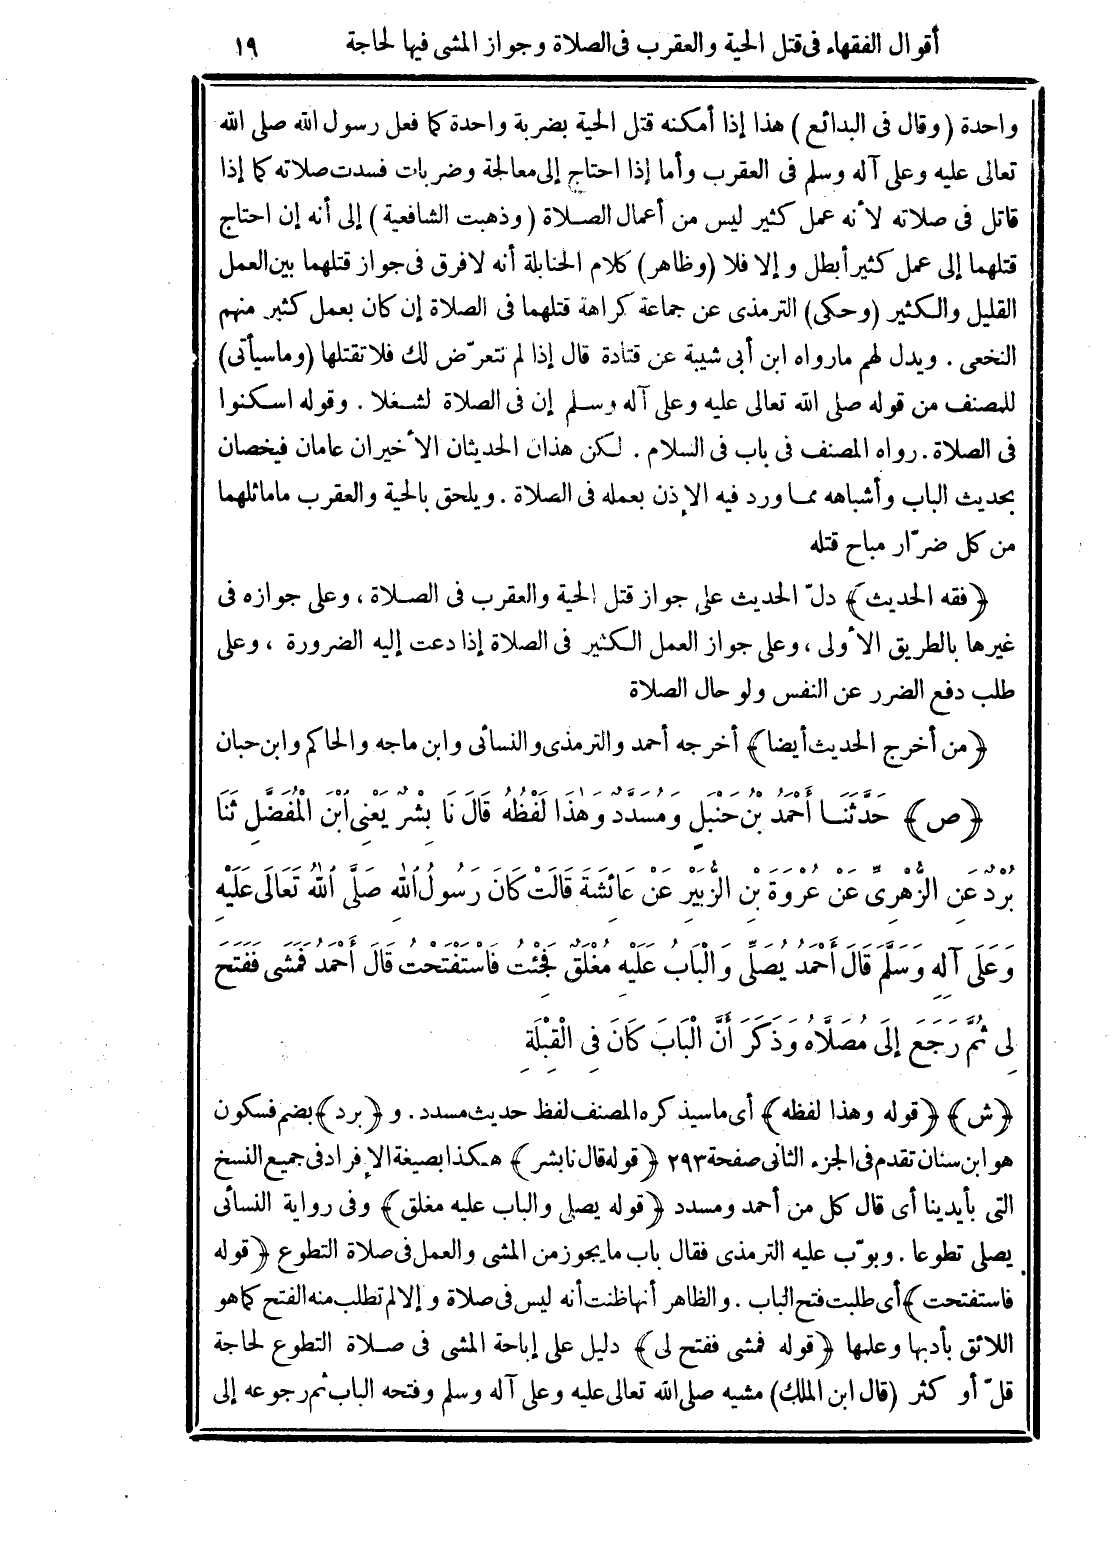 أقوال الفقهاء فى قتل الحية والعقرب فى الصلاة وجواز المشى فيها لحاجة ١٩
واحدة (وقال فى البدائع) هذا إذا أمكنه قتل الحية بضربة واحدة كما فعل رسول الله صلى الله
تعالى عليه وعلى آله وسلم فى العقرب وأما إذا احتاج إلى معالجة وضربات فسدت صلاته كما إذا
قاتل فى صلاته لأنه عمل كثير ليس من أعمال الصلاة (وذهبت الشافعية) إلى أنه إن احتاج
قتلهما إلى عمل كثير أبطل وإلا فلا (وظاهر) كلام الحنابلة أنه لافرق فى جواز قتلهما بين العمل
القليل والكثير (وحكى) الترمذى عن جماعة كراهة قتلهما فى الصلاة إن كان بعمل كثير منهم
النخعى . ويدل لهم مارواه ابن أبى شيبة عن قتادة قال إذا لم تتعرّض لك فلا تقتلها (وماسيأتى)
للمصنف من قوله صلى الله تعالى عليه وعلى آله وسلم إن فى الصلاة لشغلا . وقوله اسكنوا
فى الصلاة . رواه المصنف فى باب فى السلام . لكن هذان الحديثان الأخيران عامان فيخصان
بحديث الباب وأشباهه مما ورد فيه الإذن بعمله فى الصلاة . ويلحق بالحية والعقرب ماماثلهما
من كل ضرّار مباح قتله
﴿فقه الحديث﴾ دلّ الحديث على جواز قتل الحية والعقرب فى الصلاة ، وعلى جوازه فى
غيرها بالطريق الأولى ، وعلى جواز العمل الكثير فى الصلاة إذا دعت إليه الضرورة ، وعلى
طلب دفع الضرر عن النفس ولو حال الصلاة
﴿من أخرج الحديث أيضا﴾ أخرجه أحمد والترمذى والنسائى وابن ماجه والحاكم وابن حبان
﴿ص﴾ حَدَّثَنَا أَحْمَدُ بْنُ حَنْبَلٍ وَمُسَدَّدٌ وَهَٰذَا لَفْظُهُ قَالَ نَا بِشْرٌ يَعْنِى ٱبْنَ الْمُفَضَّلِ ثَنَا
بُرْدٌ عَنِ الزُّهْرِىِّ عَنْ عُرْوَةَ بْنِ الزُّبَيْرِ عَنْ عَائِشَةَ قَالَتْ كَانَ رَسُولُ ٱللهِ صَلَّى ٱللهُ تَعَالَى عَلَيْهِ
وَعَلَى آلِهِ وَسَلَّمَ قَالَ أَحْمَدُ يُصَلِّى وَالْبَابُ عَلَيْهِ مُغْلَقٌ فَجِئْتُ فَاسْتَفْتَحْتُ قَالَ أَحْمَدُ فَمَشَى فَفَتَحَ
لِى ثُمَّ رَجَعَ إِلَى مُصَلَّاهُ وَذَكَرَ أَنَّ الْبَابَ كَانَ فِى الْقِبْلَةِ
﴿ش﴾ ﴿قوله وهذا لفظه﴾ أى ماسيذكره المصنف لفظ حديث مسدد . و﴿برد﴾ بضم فسكون
هو ابن سنان تقدم فى الجزء الثانى صفحة ٢٩٣ ﴿قوله قال نا بشر﴾ هكذا بصيغة الإفراد فى جميع النسخ
التى بأيدينا أى قال كل من أحمد ومسدد ﴿قوله يصلى والباب عليه مغلق﴾ وفى رواية النسائى
يصلى تطوعا . وبوّب عليه الترمذى فقال باب مايجوز من المشى والعمل فى صلاة التطوع ﴿قوله
فاستفتحت﴾ أى طلبت فتح الباب . والظاهر أنها ظنت أنه ليس فى صلاة وإلا لم تطلب منه الفتح كما هو
اللائق بأدبها وعلمها ﴿قوله فمشى ففتح لى﴾ دليل على إباحة المشى فى صلاة التطوع لحاجة
قلّ أو كثر (قال ابن الملك) مشيه صلى الله تعالى عليه وعلى آله وسلم وفتحه الباب ثم رجوعه إلى